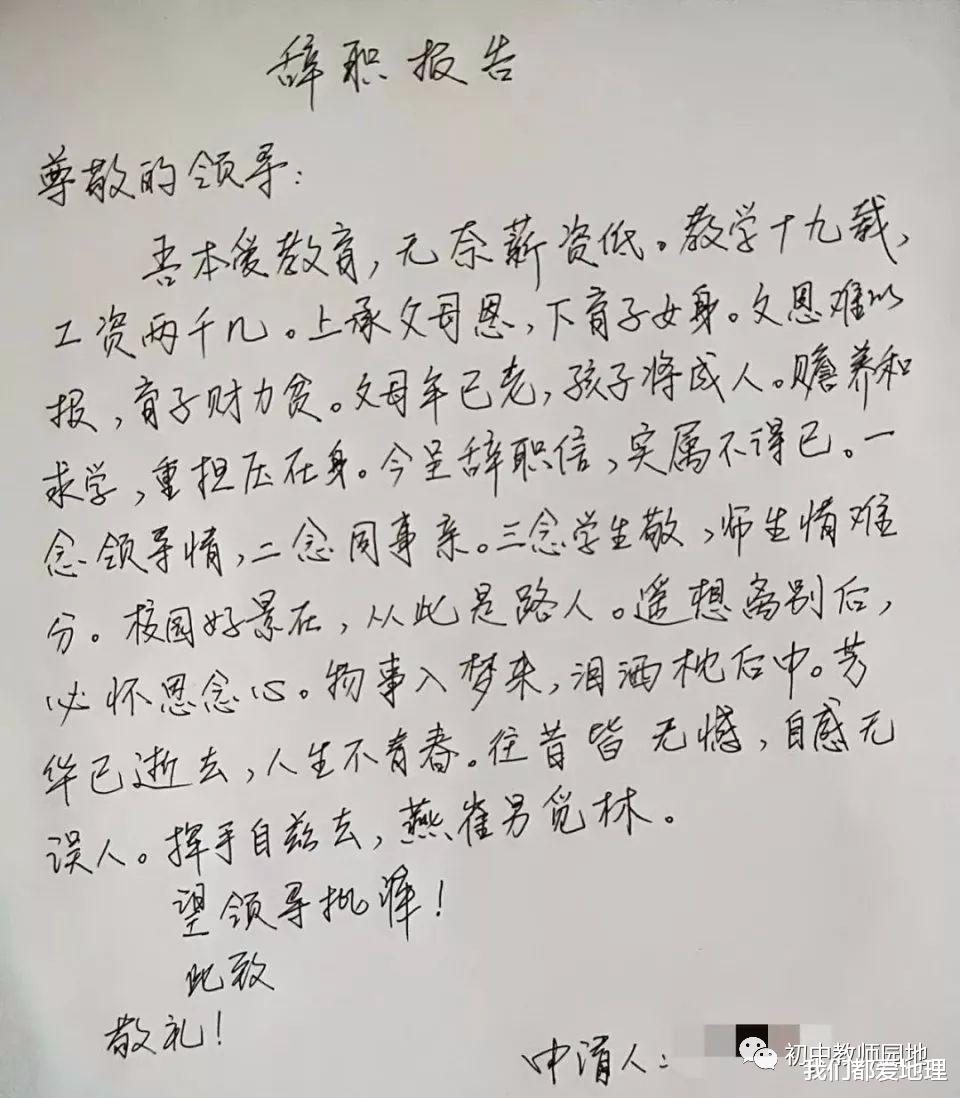 辞职报告
尊敬的领导：
吾本爱教育，无奈薪资低。教学十九载，
工资两千几。上承父母恩，下育子女身。父恩难以
报，育子财力贫。父母年已老，孩子将成人。赡养和
求学，重担压在身。今呈辞职信，实属不得已。一
念领导情，二念同事亲。三念学生敬，师生情难
分。校园好景在，从此是路人。遥想离别后，
必怀思念心。物事入梦来，泪洒枕后中。芳
华已逝去，人生不青春。往昔皆无憾，自感无
误人。挥手自兹去，燕雀另觅林。
望领导批准！
此致
敬礼！
申请人：
初中教师园地
我们都爱地理